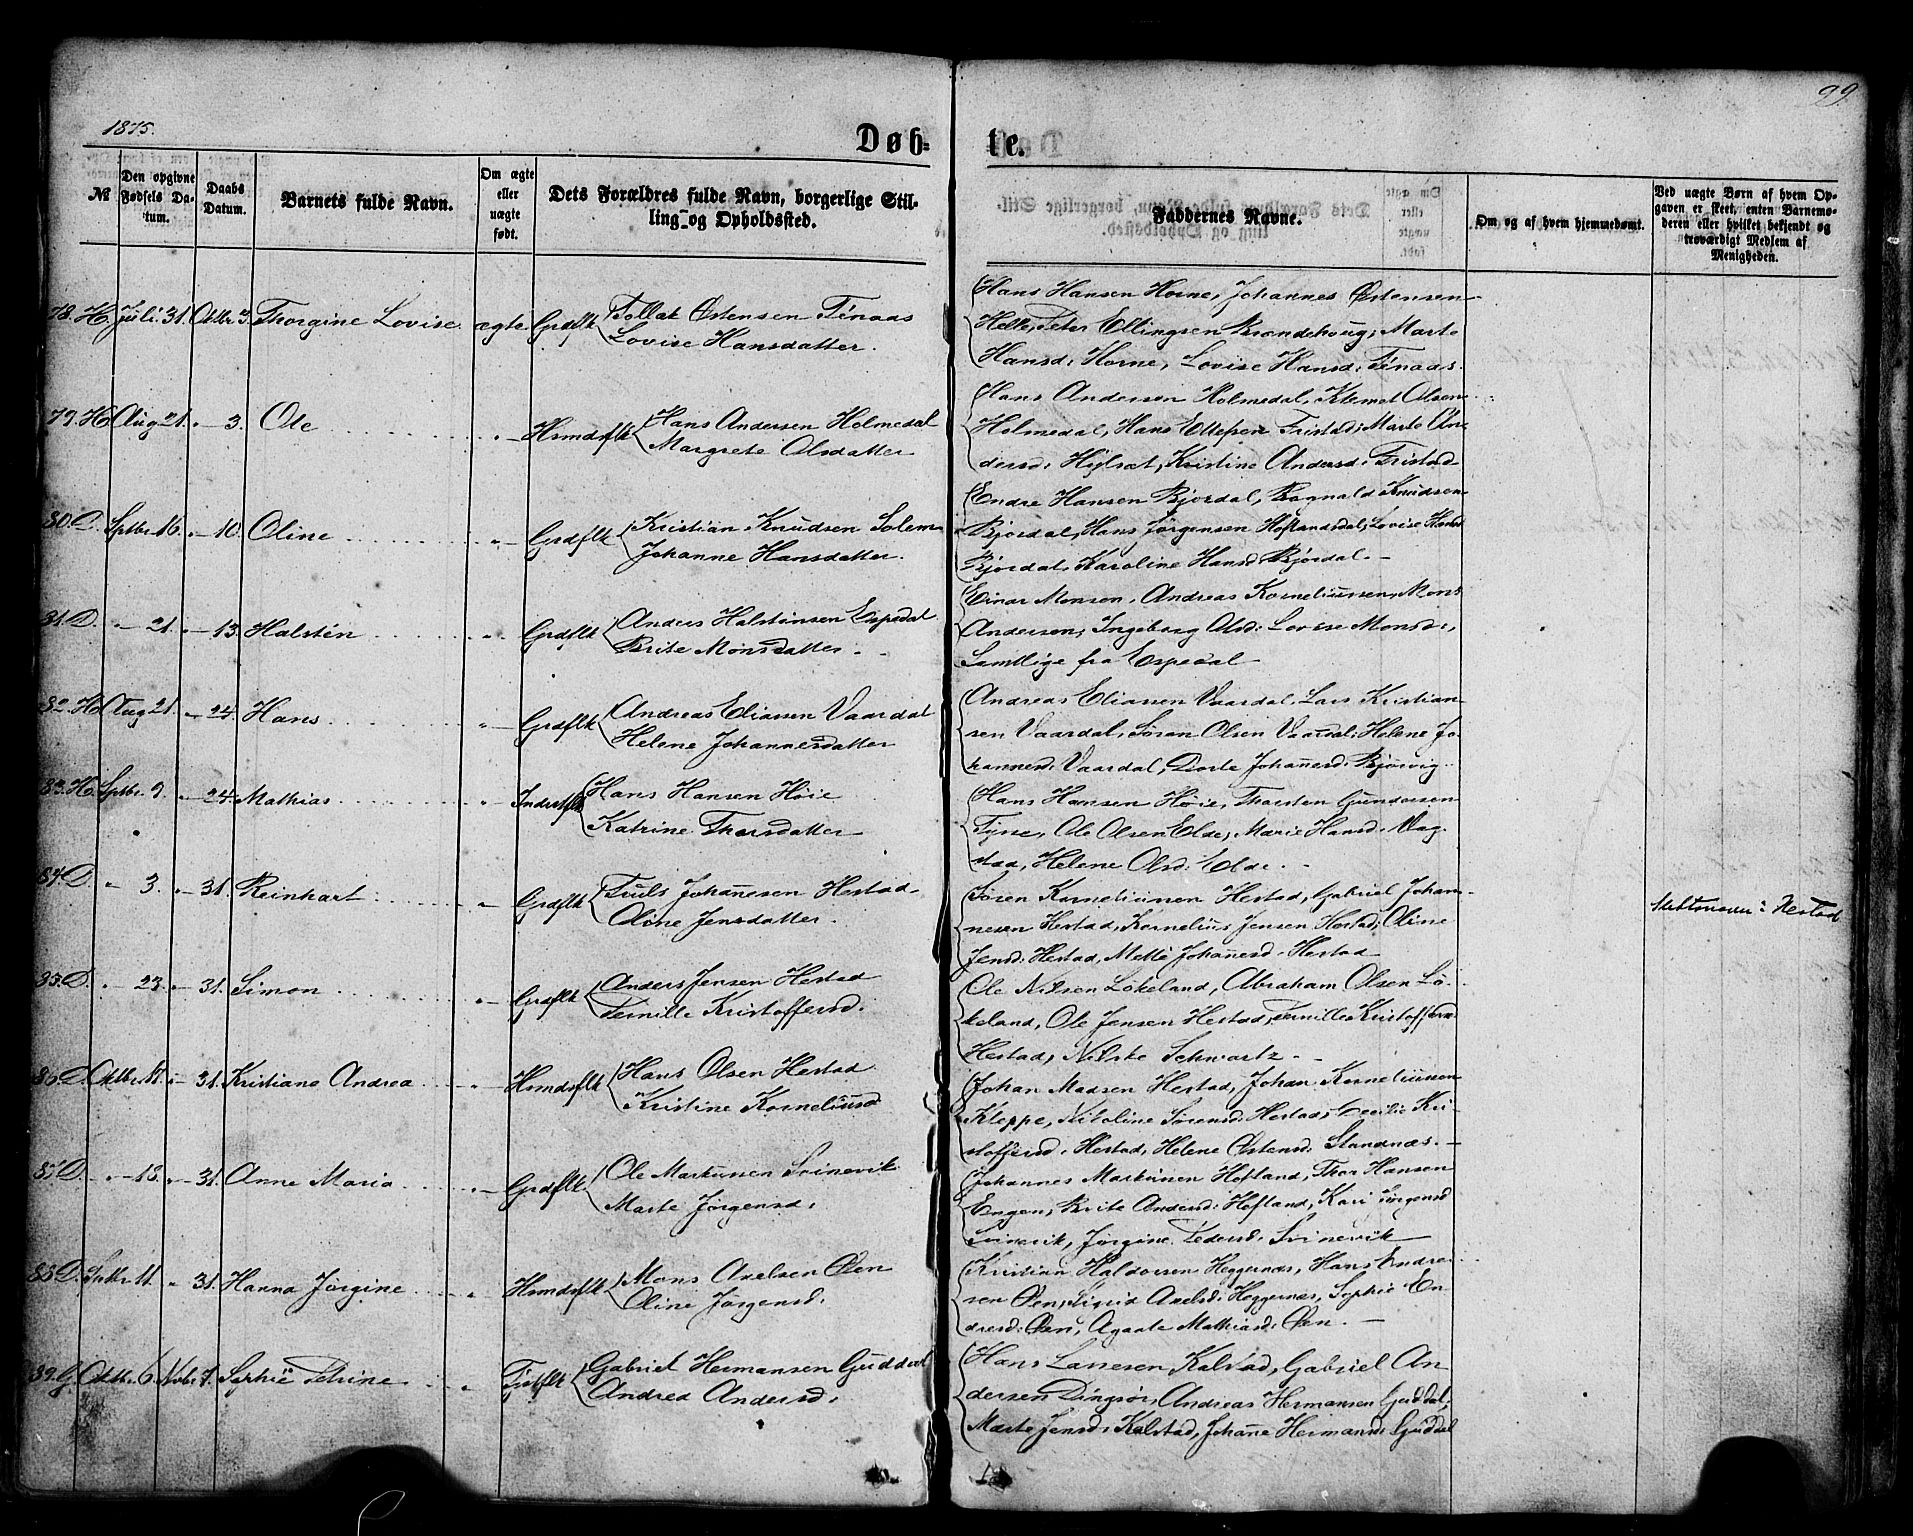 1875.
99
Døb-
te.
№
Den opgivne Fødsels Datum.
Daabs Datum.
Barnets fulde Navn.
Om ægte eller uægte født.
Dets Forældres fulde Navn, borgerlige Stilling og Opholdssted.
Faddernes Navne.
Om og af hvem hjemmedømt.
Ved uægte Børn af hvem Opgaven er skeet, enten Barnemoderen eller hvilket bekjendt og troværdigt Medlem af Menigheden.
78. H. Juli 31. Oktbr 3. Thorgine Lovise ægte Grdflk Tollak Østensen Ténaas
Lovise Hansdatter.
Hans Hansen Horne, Johannes Østensen
Helle, Peter Ellingsen Brandehoug, Marte
Hansd: Horne, Lovise Hansd: Ténaas.
79. H. Aug 21. 3. Ole Hsmdsflk Hans Andersen Holmedal
Margrete Olsdatter
Hans Andersen Holmedal, Klemet Olsen
Holmedal, Hans Tristad, Marte An-
dersd: Kristine Andersd: Tristad
80. D. Sptbr 16. 10. Oline Grdflk Kristian Knudsen Solem
Johanne Hansdatter.
Endre Hansen Bjordal, Ragnald Knudsen
Bjordal, Hans Jørgensen Hoflandsdal, Lovise Hansd
Bjordal, Karoline Hansd. Bjordal.
81. D. 21. 13. Halstén Grdflk Anders Halstensen Espedal
Brite Monsdatter
Einar Monsen, Andreas Korneliussen, Mons
Andersen, Ingeborg Olsd: Lovise Monsd:,
Samtlige fra Espedal
82. H. Aug 21. 24. Hans Grdflk Andreas Eliassen Vaardal
Helene Johannesdatter
Andreas Eliassen Vaardal, Lars Kristian-
sen Vaardal, Søren Olsen Vaardal, Helene Jo-
hannesd: Vaardal, Dorte Johannesd: Bjørvig
83. H. Sptbr. 9. 24. Mathias Inderstflk Hans Hansen Høie
Katrine Thorsdatter
Hans Hansen Høie, Thorsten Gundersen
Tysse, Ole Olsen Elde, Marie Hansd. Vag-
stad, Helene Olsd: Elde.
84. D. 3. 31. Reinhart Grdflk Truls Johanesen Hestad
Oline Jensdatter.
Søren Korneliussen Hestad, Gabriel Johan-
nesen Hestad, Kornelius Jensen Hestad, Oline
Jensd: Hestad, Mette Johanesd. Hestad
Hestad
85. D. 23. 31. Simon Grdflk Anders Jensen Hestad
Pernille Kristoffersd.
Ole Nilsen Løkeland, Abraham Olsen Lø-
keland, Ole Jensen Hestad, Pernille Kristoffersd
Hestad, Schwartz.
86. D. Oktbr. 11. 31. Kristiane Andrea Hsmdsflk Hans Olsen Hestad
Kristine Korneliusd
Johan Madsen Hestad, Johan Korneliussen
Kleppe, Nikoline Sørensd: Hestad, Cecilie Kri-
stoffersd. Hestad, Helene Østensd: Standnæs.
87. D. 18. 31. Anne Maria Grdflk Ole Markussen Svinevik
Marte Jørgensd.
Johannes Markussen Hofland, Thor Hansen
Engen, Brite Andersd: Hofland, Kari Jørgensd
Svinevik, Jørgine Pedersd. Svinevik
88. D. Sptbr 11. 31. Hanna Jørgine Hsmdsflk Mons Axelsen Øen
Oline Jørgensd.
Kristian Haldorsen Heggernæs, Hans Endre-
sen Øen, Sigrid Axelsd: Heggernæs, Sophie En-
dresd: Øen, Agaate Mathiasd: Øen.
89. G. Oktbr. 6. Nvbr 7. Sophie Trine Gabriel Hermansen Guddal
Andrea Andersd.
Hans Lassesen Kalstad, Gabriel An-
dersen Dingsør, Andreas Hermansen Guddal,
Marte Jensd: Kalstad, Johane Hermansd: Guddal